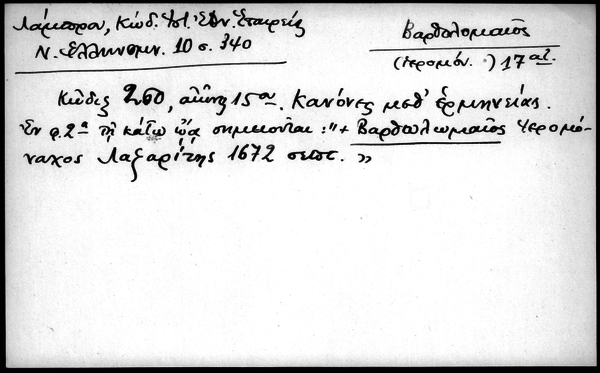 Λάμπρου, Κώδ. Ἱστ. Ἐθν. Ἑταιρείας
Ν. Ἑλληνομν. 10 σ. 340
Βαρθολομαῖος
(ἱερομόν. ) 17 αἰ.
Κῶδιξ 260, αἰῶνος 15ου. Κανόνες μεθ' ἑρμηνείας.
Ἐν φ. 2α τῇ κάτω ᾤᾳ σημειοῦται : "+ Βαρθωλωμαῖος ἱερομό-
ναχος Λαζαρίτης 1672 σεπτ. "